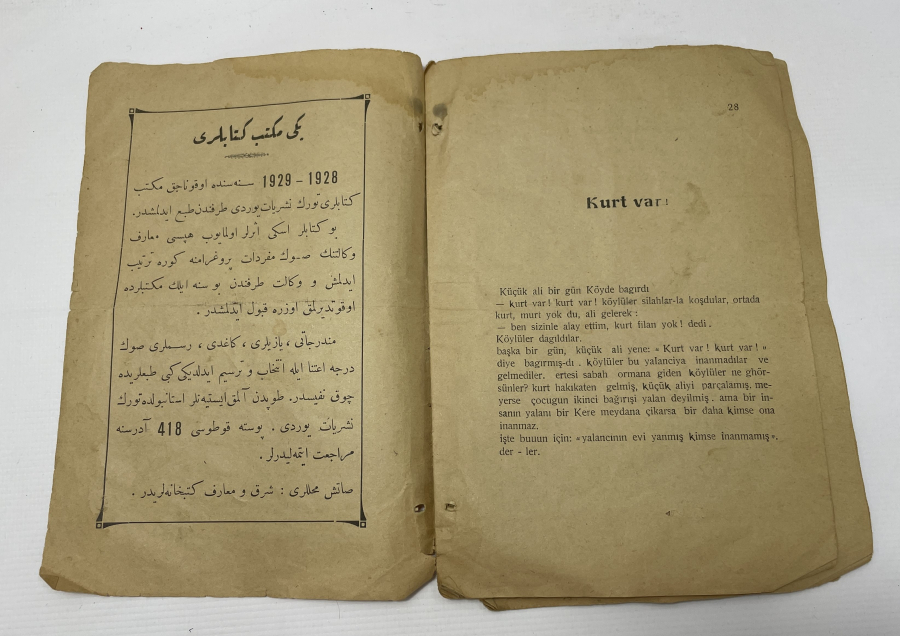 یکی مکتب کتابلری
1928 – 1929 سنه‌سنده اوقوناجق مکتب
کتابلری تورك نشریات یوردی طرفندن طبع ایدلمشدر.
بو کتابلر اسکی اثرلر اولمایوب هپسی معارف
وکالتنك صوك مفردات پروغرامنه کوره ترتیب
ایدلمش و وکالت طرفندن بو سنه ایلك مکتبلرده
اوقوتدیرلمق اوزره قبول ایدلمشدر.
مندرجاتی ، یازیلری ، کاغدی ، رسملری صوك
درجه اعتنا ایله انتخاب و ترسیم ایدلدیکی کبی طبعلریده
چوق نفیسدر. طوپدن آلمق ایستیه‌نلر استانبولده تورك
نشریات یوردی . پوسته قوطوسی 418 آدرسنه
مراجعت ایتمه‌لیدرلر .
صاتش محللری : شرق و معارف کتبخانه‌لریدر .
28
Kurt var!
Küçük ali bir gün Köyde bagırdı
— kurt var! kurt var! köylüler silahlar-la koşdular, ortada
kurt, murt yok du, ali gelerek :
— ben sizinle alay ettim, kurt filan yok! dedi.
Köylüler dagıldılar.
başka bir gün, küçük ali yene: « Kurt var! kurt var! »
diye bagırmış-dı . köylüler bu yalanciya inanmadılar ve
gelmediler. ertesi sabah ormana giden köylüler ne ghör-
sünler? kurt hakıkaten gelmiş, küçük aliyi parçalamış. me-
yerse çocugun ikinci bağırışı yalan deyilmiş. ama bir in-
sanın yalanı bir Kere meydana çikarsa bir daha kimse ona
inanmaz.
işte buuun için: «yalancının evi yanmış kimse inanmamış».
der - ler.